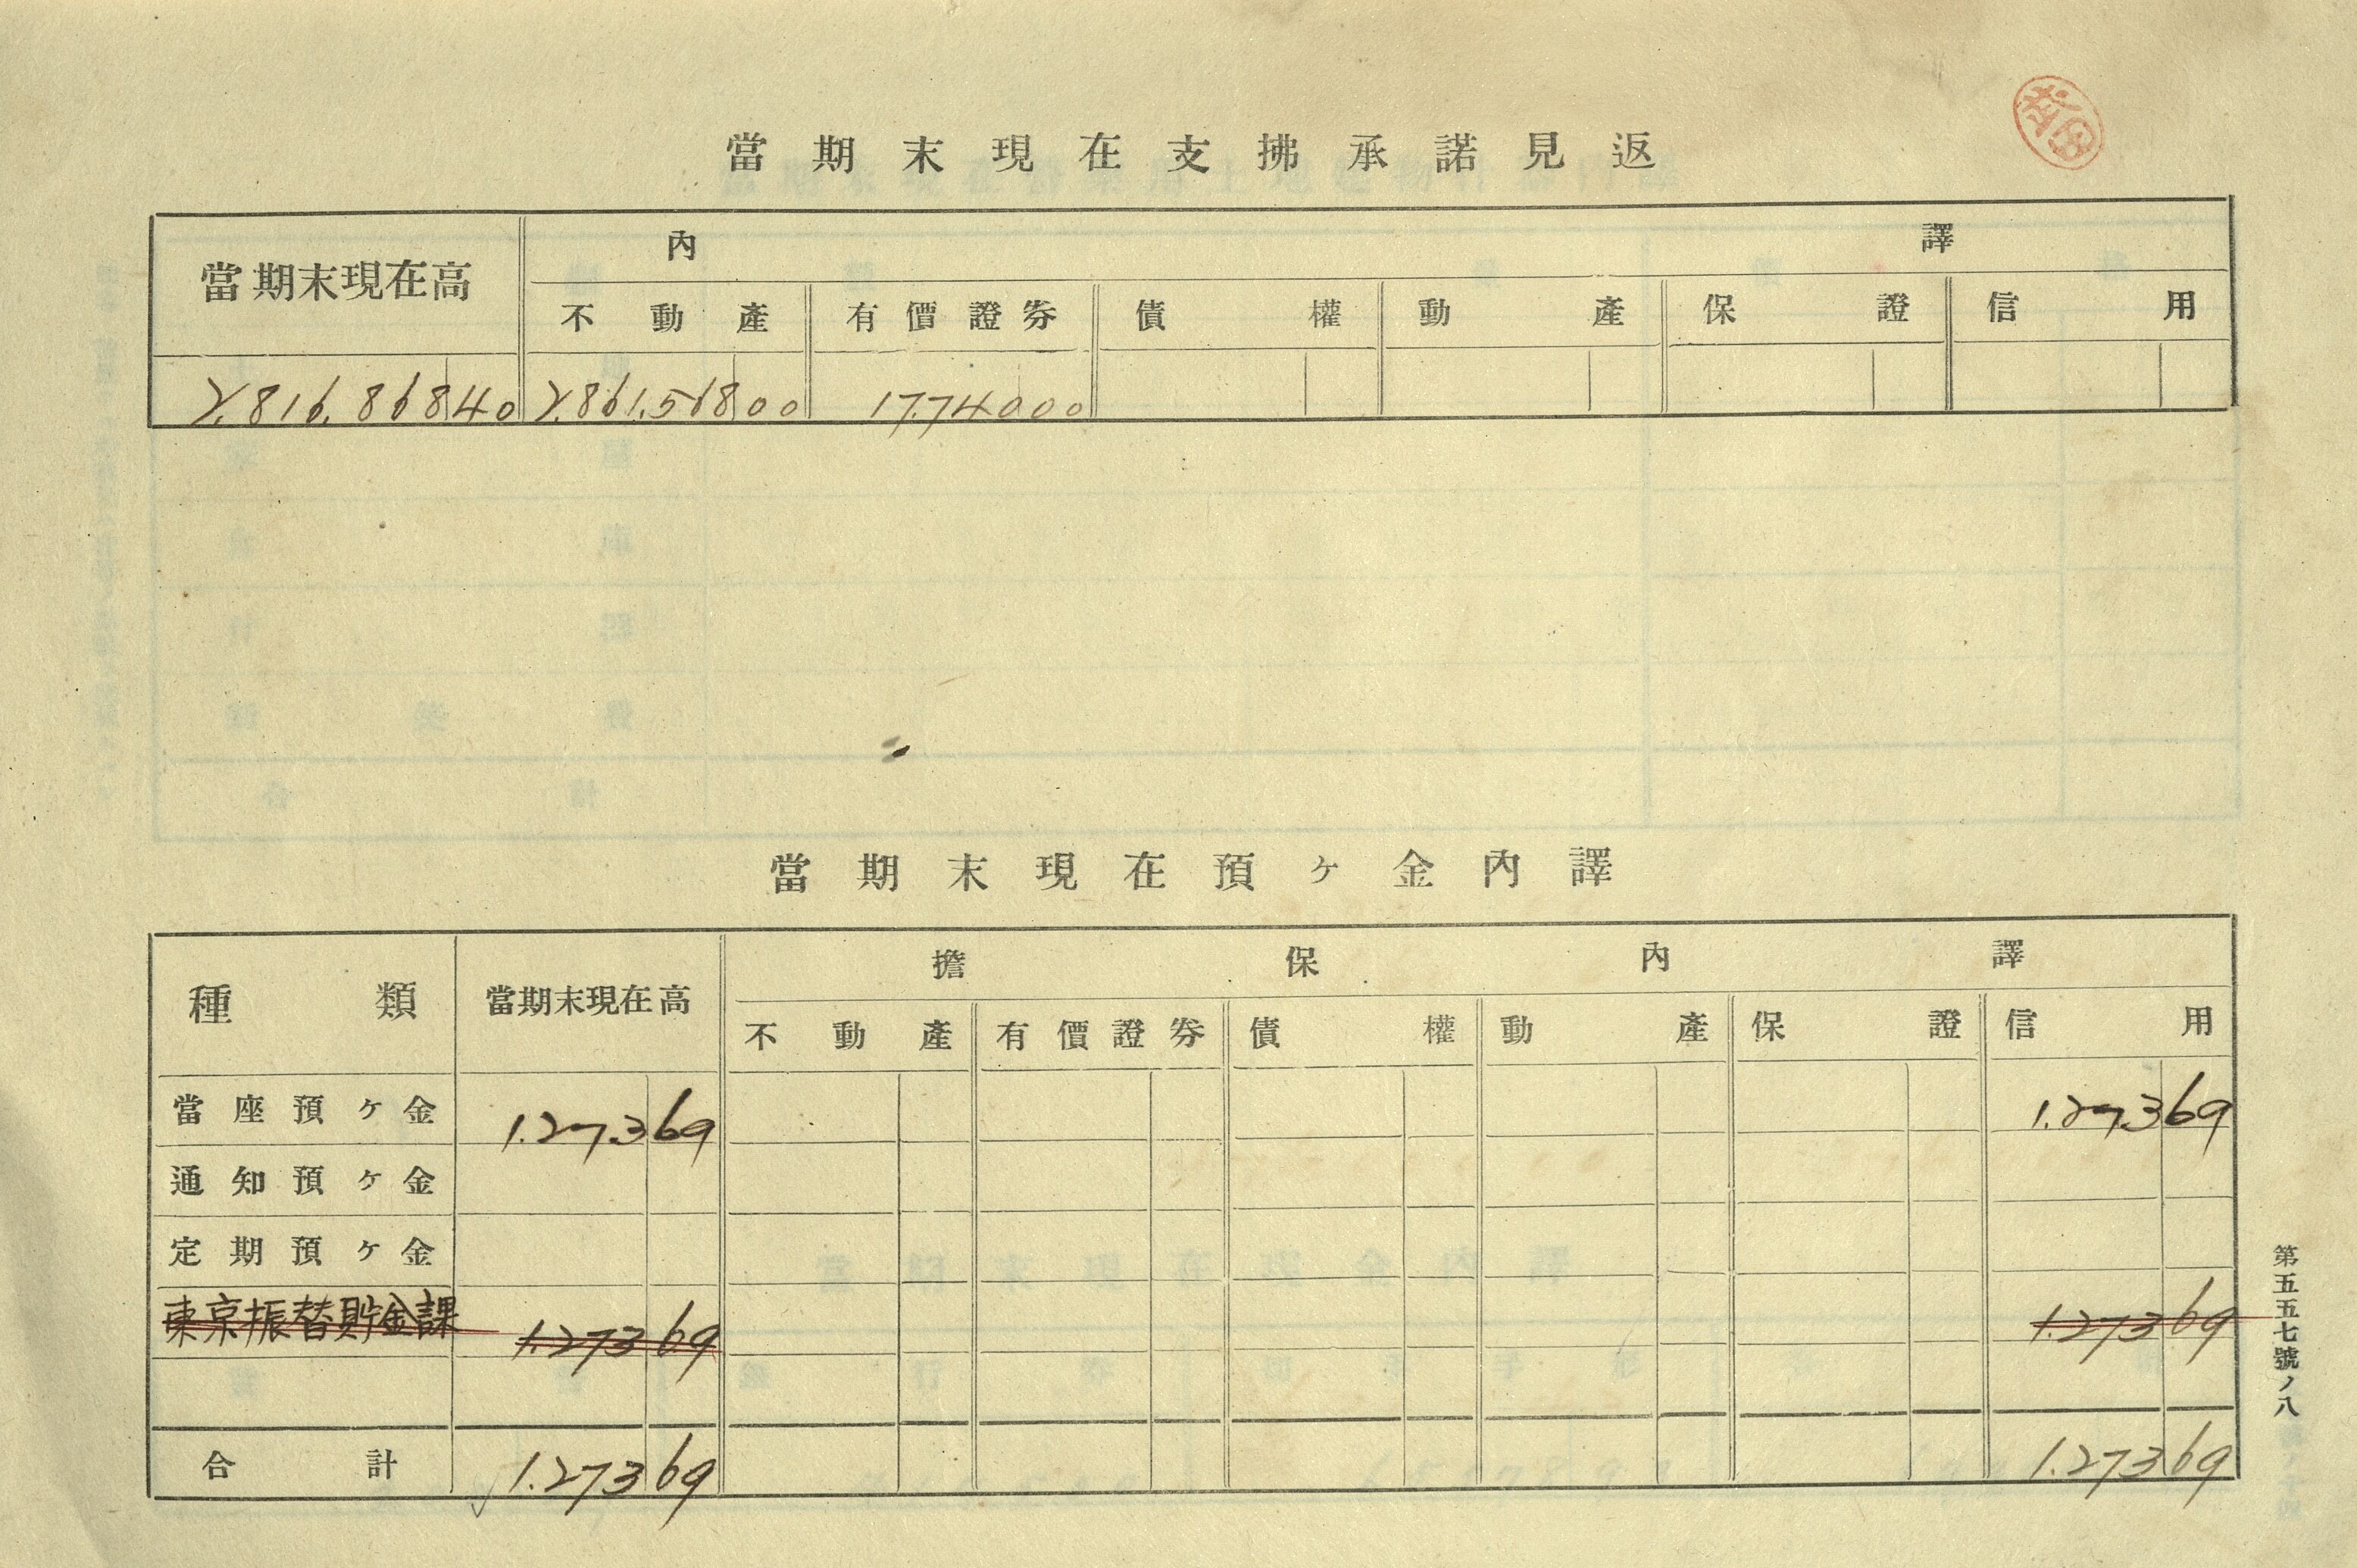 當期末現在支拂承諾見返
當期末現在高 內譯
不動產 有價證券 債權 動產 保證 信用
2.816.868 40 2.861.568 00 17.740 00
當期末現在預ヶ金內譯
種類 當期末現在高 擔保內譯
不動產 有價證券 債權 動產 保證 信用
當座預ヶ金 1.273 69 1.273 69
通知預ヶ金
定期預ヶ金
東京振替貯金課 1.273 69 1.273 69
合計 1.273 69 1.273 69
第五五七號ノ八